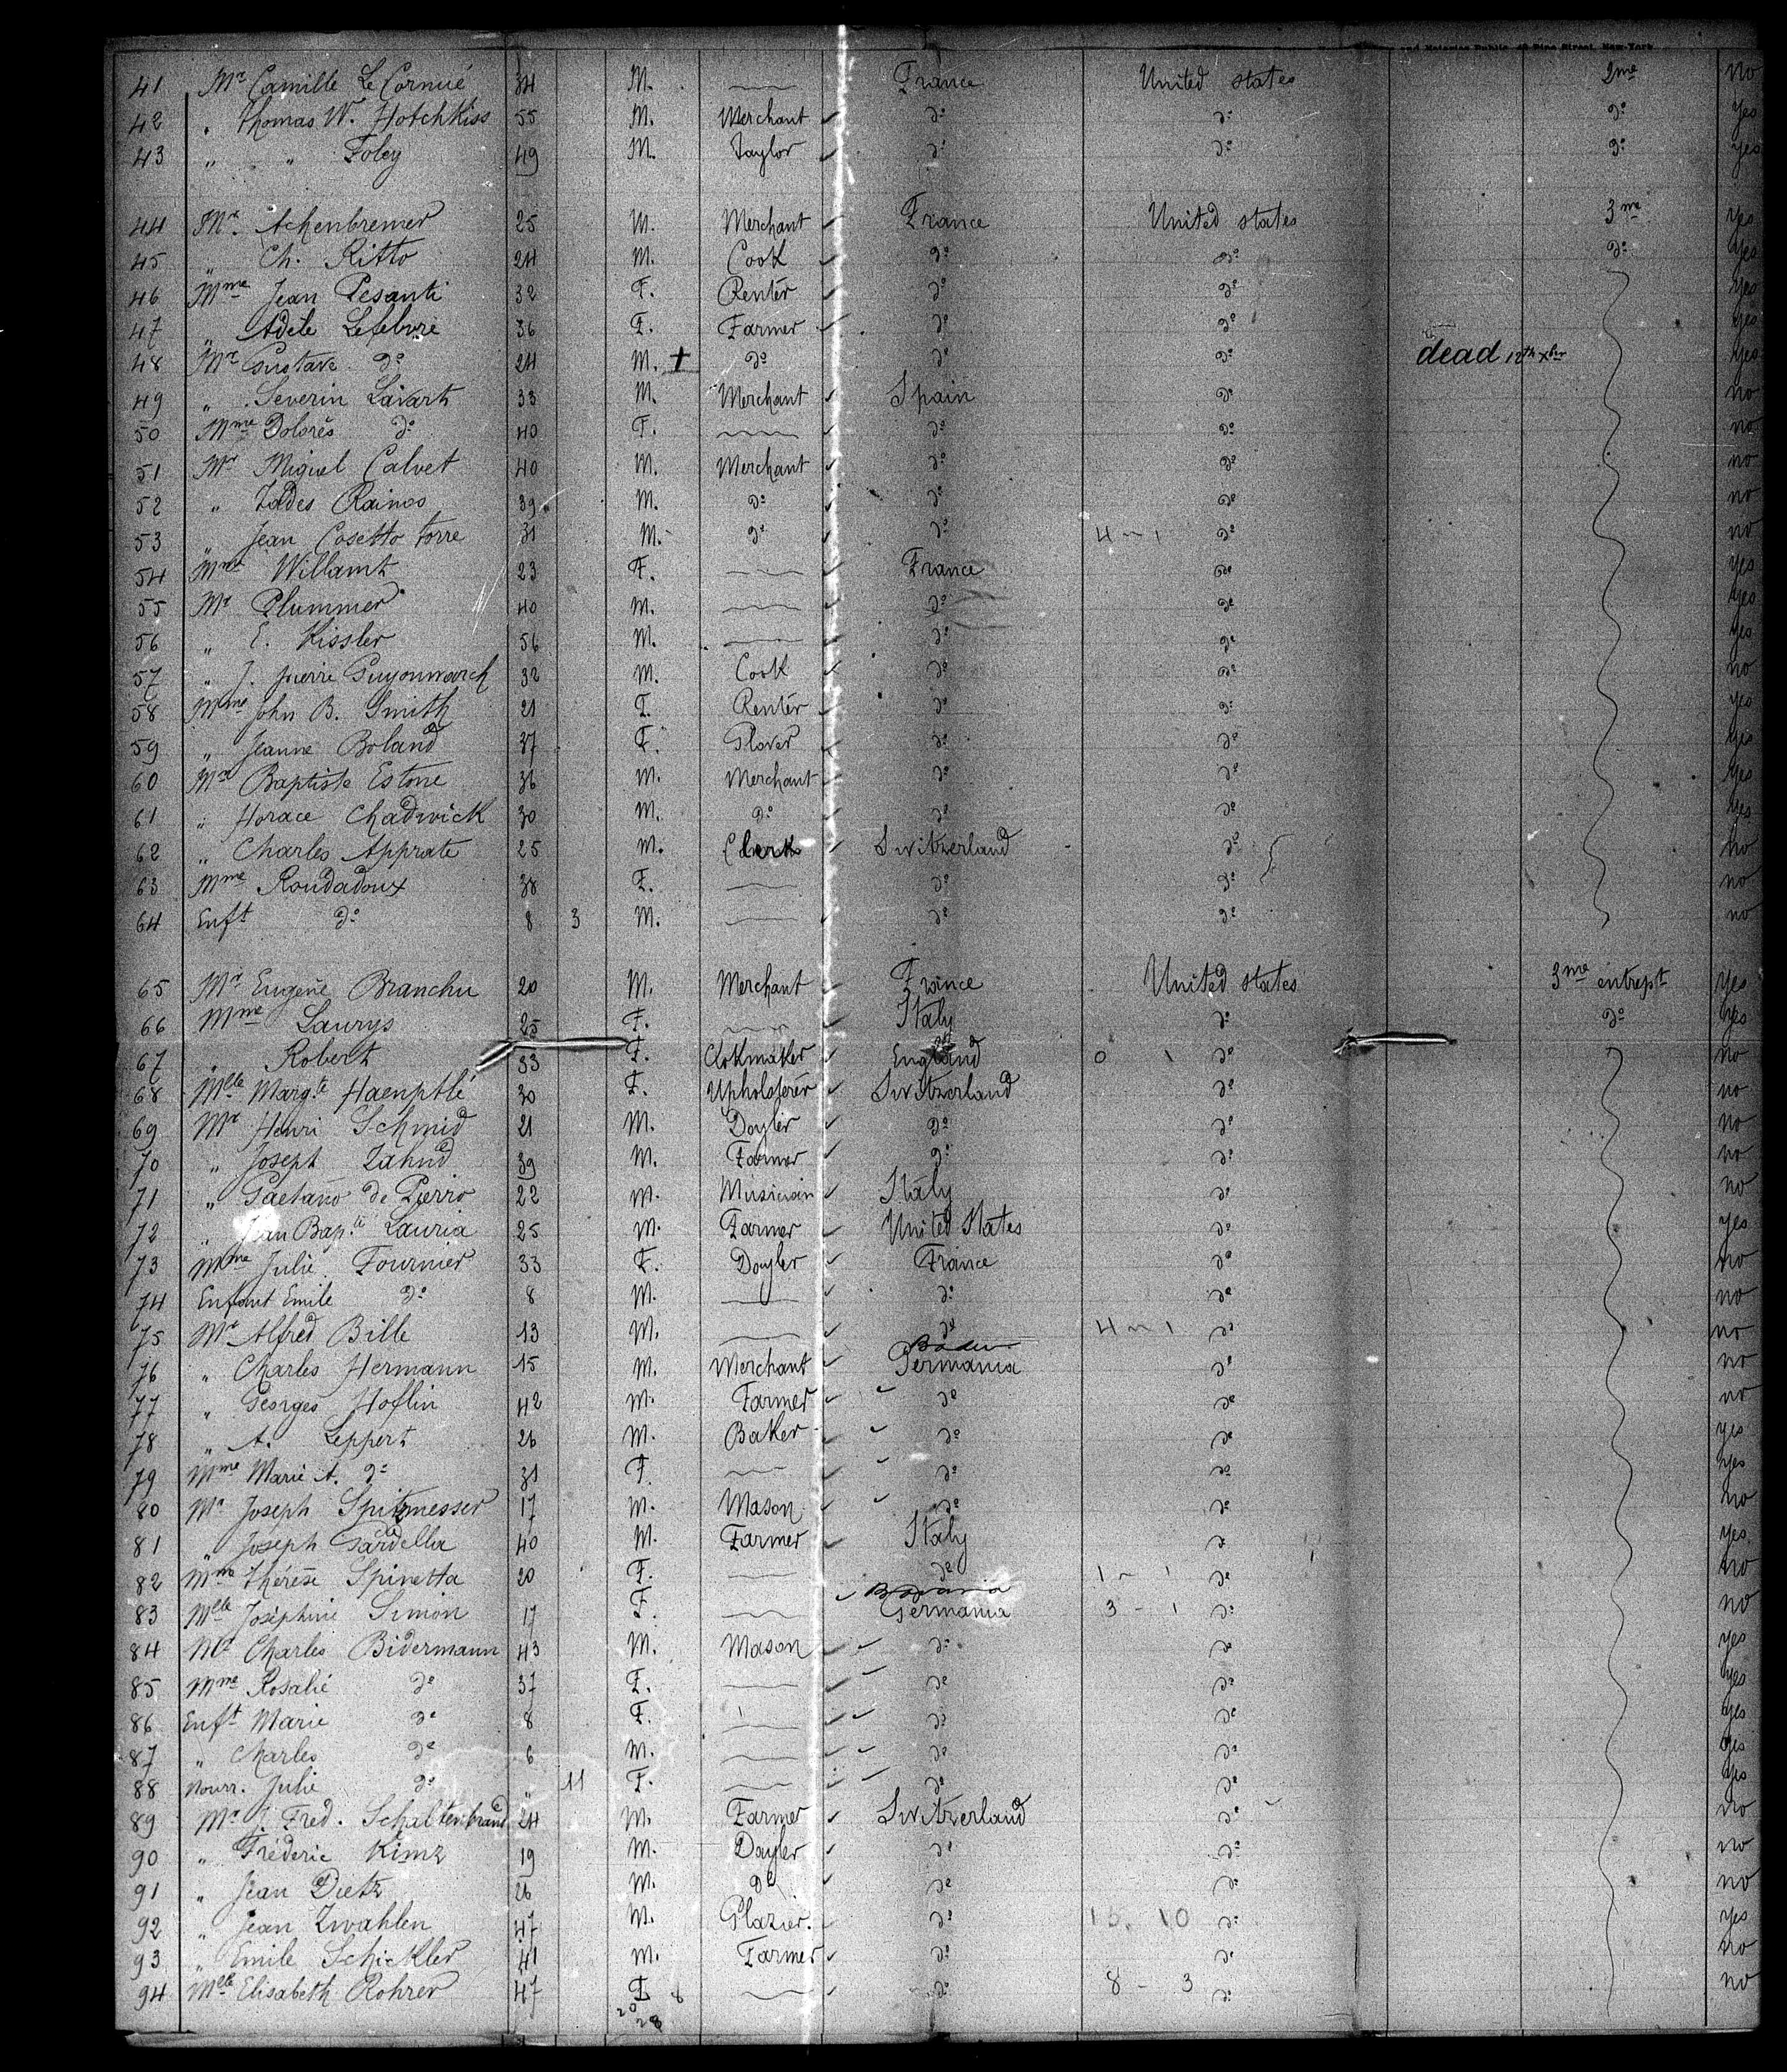 and Notaries Public, Pine Street, New-York
41 Mr Camille Le Cornué 34 M. France United states 2me No
42 " Thomas W. Hotchkiss 55 M. Merchant do do do Yes
43 " " Foley 49 M. Taylor do do do yes
44 Mr. Achenbremer 25 M. Merchant France United states 3me yes
45 " Ch. Ritto 24 M. Cook do do do Yes
46 Mme Jean Pesanti 32 F. Rentér do do Yes
47 " Adèle Lefebvre 36 F. Farmer do do yes
48 Mr Gustave do 24 M. + do do do dead 12th xber Yes
49 " Severin Lavart 33 M. Merchant Spain do no
50 Mme Dolorès do 40 F. do do no
51 Mr Miguel Calvet 40 M. Merchant do do no
52 " Tades Rainos 39 M. do do do no
53 " Jean Cosetto Torre 31 M. do do 4 ~ 1 do no
54 Mme Willamt 23 F. France do yes
55 Mr Plummer 40 M. do do Yes
56 " E. Kissler 56 M. do do yes
57 " J. pierre Guyonvarch 32 M. Cook do do no
58 Mme John B. Smith 21 F. Rentér do do yes
59 " Jeanne Boland 37 F. Glover do do yes
60 Mr Baptiste Estone 36 M. Merchant do do Yes
61 " Horace Chadwick 30 M. do do do Yes
62 " Charles Apprate 25 M. Clerk Switzerland do no
63 Mme Roudadoux 38 F. do do no
64 Enft do 8 3 M. do do no
65 Mr Eugène Branchu 20 M. Merchant France United states 3me entrept Yes
66 Mme Laurys 25 F. Italy do do Yes
67 " Robert 33 F. Clokmaker England 0 1 do no
68 Melle Margte Haenptlé 30 F. Upholsterer Switzerland do no
69 Mr Henri Schmid 21 M. Dayler do do no
70 " Joseph Zahnd 39 M. Farmer do do no
71 " Gaetano de Pierro 22 M. Musician Italy do no
72 " Jean Bapte Lauria 25 M. Farmer United States do yes
73 Mme Julie Fournier 33 F. Dayler France do no
74 Enfant Emile do 8 M. do do no
75 Mr Alfred Bille 13 M. do 4 ~ 1 do no
76 " Charles Hermann 15 M. Merchant Baden Germania do no
77 " Georges Hoflin 42 M. Farmer do do no
78 " A. Leppert 26 M. Baker do do yes
79 Mme Marie A. do 31 F. do do yes
80 Mr Joseph Spitzmesser 17 M. Mason do do no
81 " Joseph Gardella 40 M. Farmer Italy do yes
82 Mme Thérèse Spinetta 20 F. do 1 ~ 1 do no
83 Melle Joséphine Simon 17 F. Bavaria Germania 3 - 1 do no
84 Mr Charles Bidermann 43 M. Mason do do yes
85 Mme Rosalie do 37 F. do do yes
86 Enft Marie do 8 F. do do yes
87 " Charles do 6 M. do do yes
88 Nourr. Julie do " 11 F. do do yes
89 Mr J. Fred. Schaltenbrand 24 M. Farmer Switzerland do no
90 " Fréderic Kimz 19 M. Dayler do do no
91 " Jean Dietz 26 M. do do do no
92 " Jean Zwahlen 47 M. Glazier. do 15. 10 do yes
93 " Emile Schickler 41 M. Farmer do do no
94 Melle Elisabeth Rohrer 47 F. 8 do 8 - 3 do no
20
28